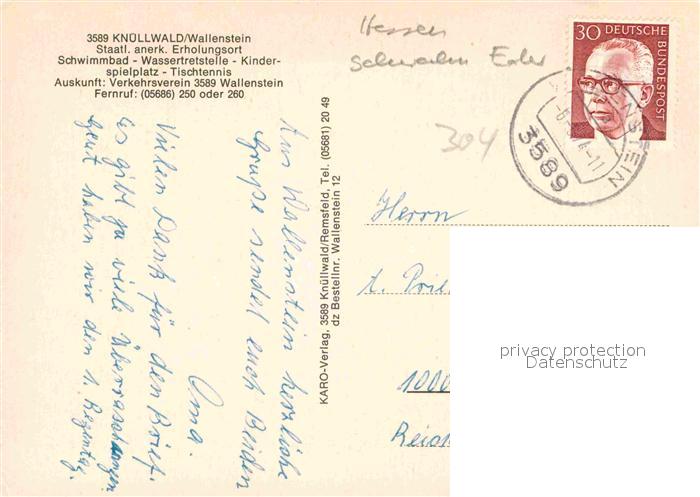 3589 KNÜLLWALD/Wallenstein
Staatl. anerk. Erholungsort
Schwimmbad - Wassertretstelle - Kinder-
spielplatz - Tischtennis
Auskunft: Verkehrsverein 3589 Wallenstein
Fernruf: (05686) 250 oder 260
Aus Wallenstein herzliche
Grüße sendet euch Beiden
Oma.
Vielen Dank für den Brief.
Es gibt ja viele Überraschungen
heut haben wir den 1. Regentag.
KARO-Verlag, 3589 Knüllwald/Remsfeld, Tel. (05681) 20 49
dz Bestellnr. Wallenstein 12
Hessen
Schwalm Eder
304
30 DEUTSCHE
BUNDESPOST
3589
Herrn
1000
privacy protection
Datenschutz